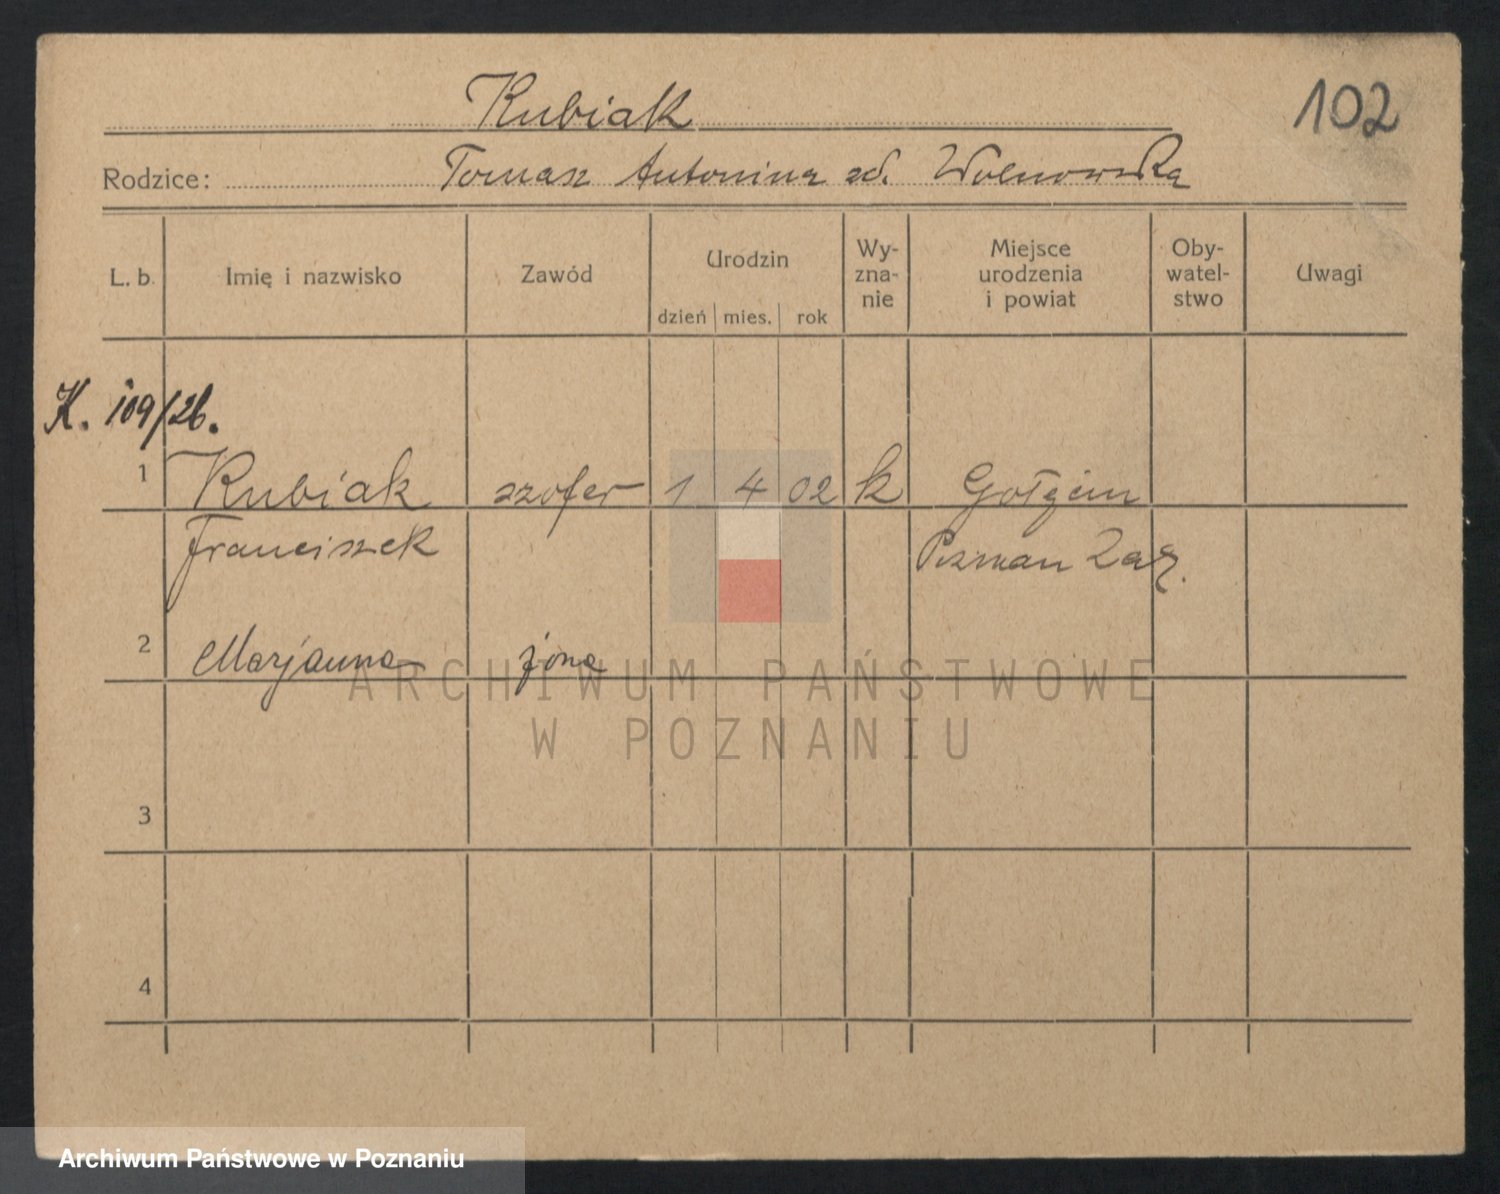 Kubiak
102
Rodzice: Tomasz Antonina zd. Wolnowska
L. b. Imię i nazwisko Zawód Urodzin dzień mies. rok Wy-zna-nie Miejsce urodzenia i powiat Oby-watel-stwo Uwagi
K. 109/26.
1 Kubiak szofer 1 4 02 k Gołęcin
Franciszek Poznan Zach.
2 Marjanna żona
3
4
ARCHIWUM PAŃSTWOWE
W POZNANIU
Archiwum Państwowe w Poznaniu